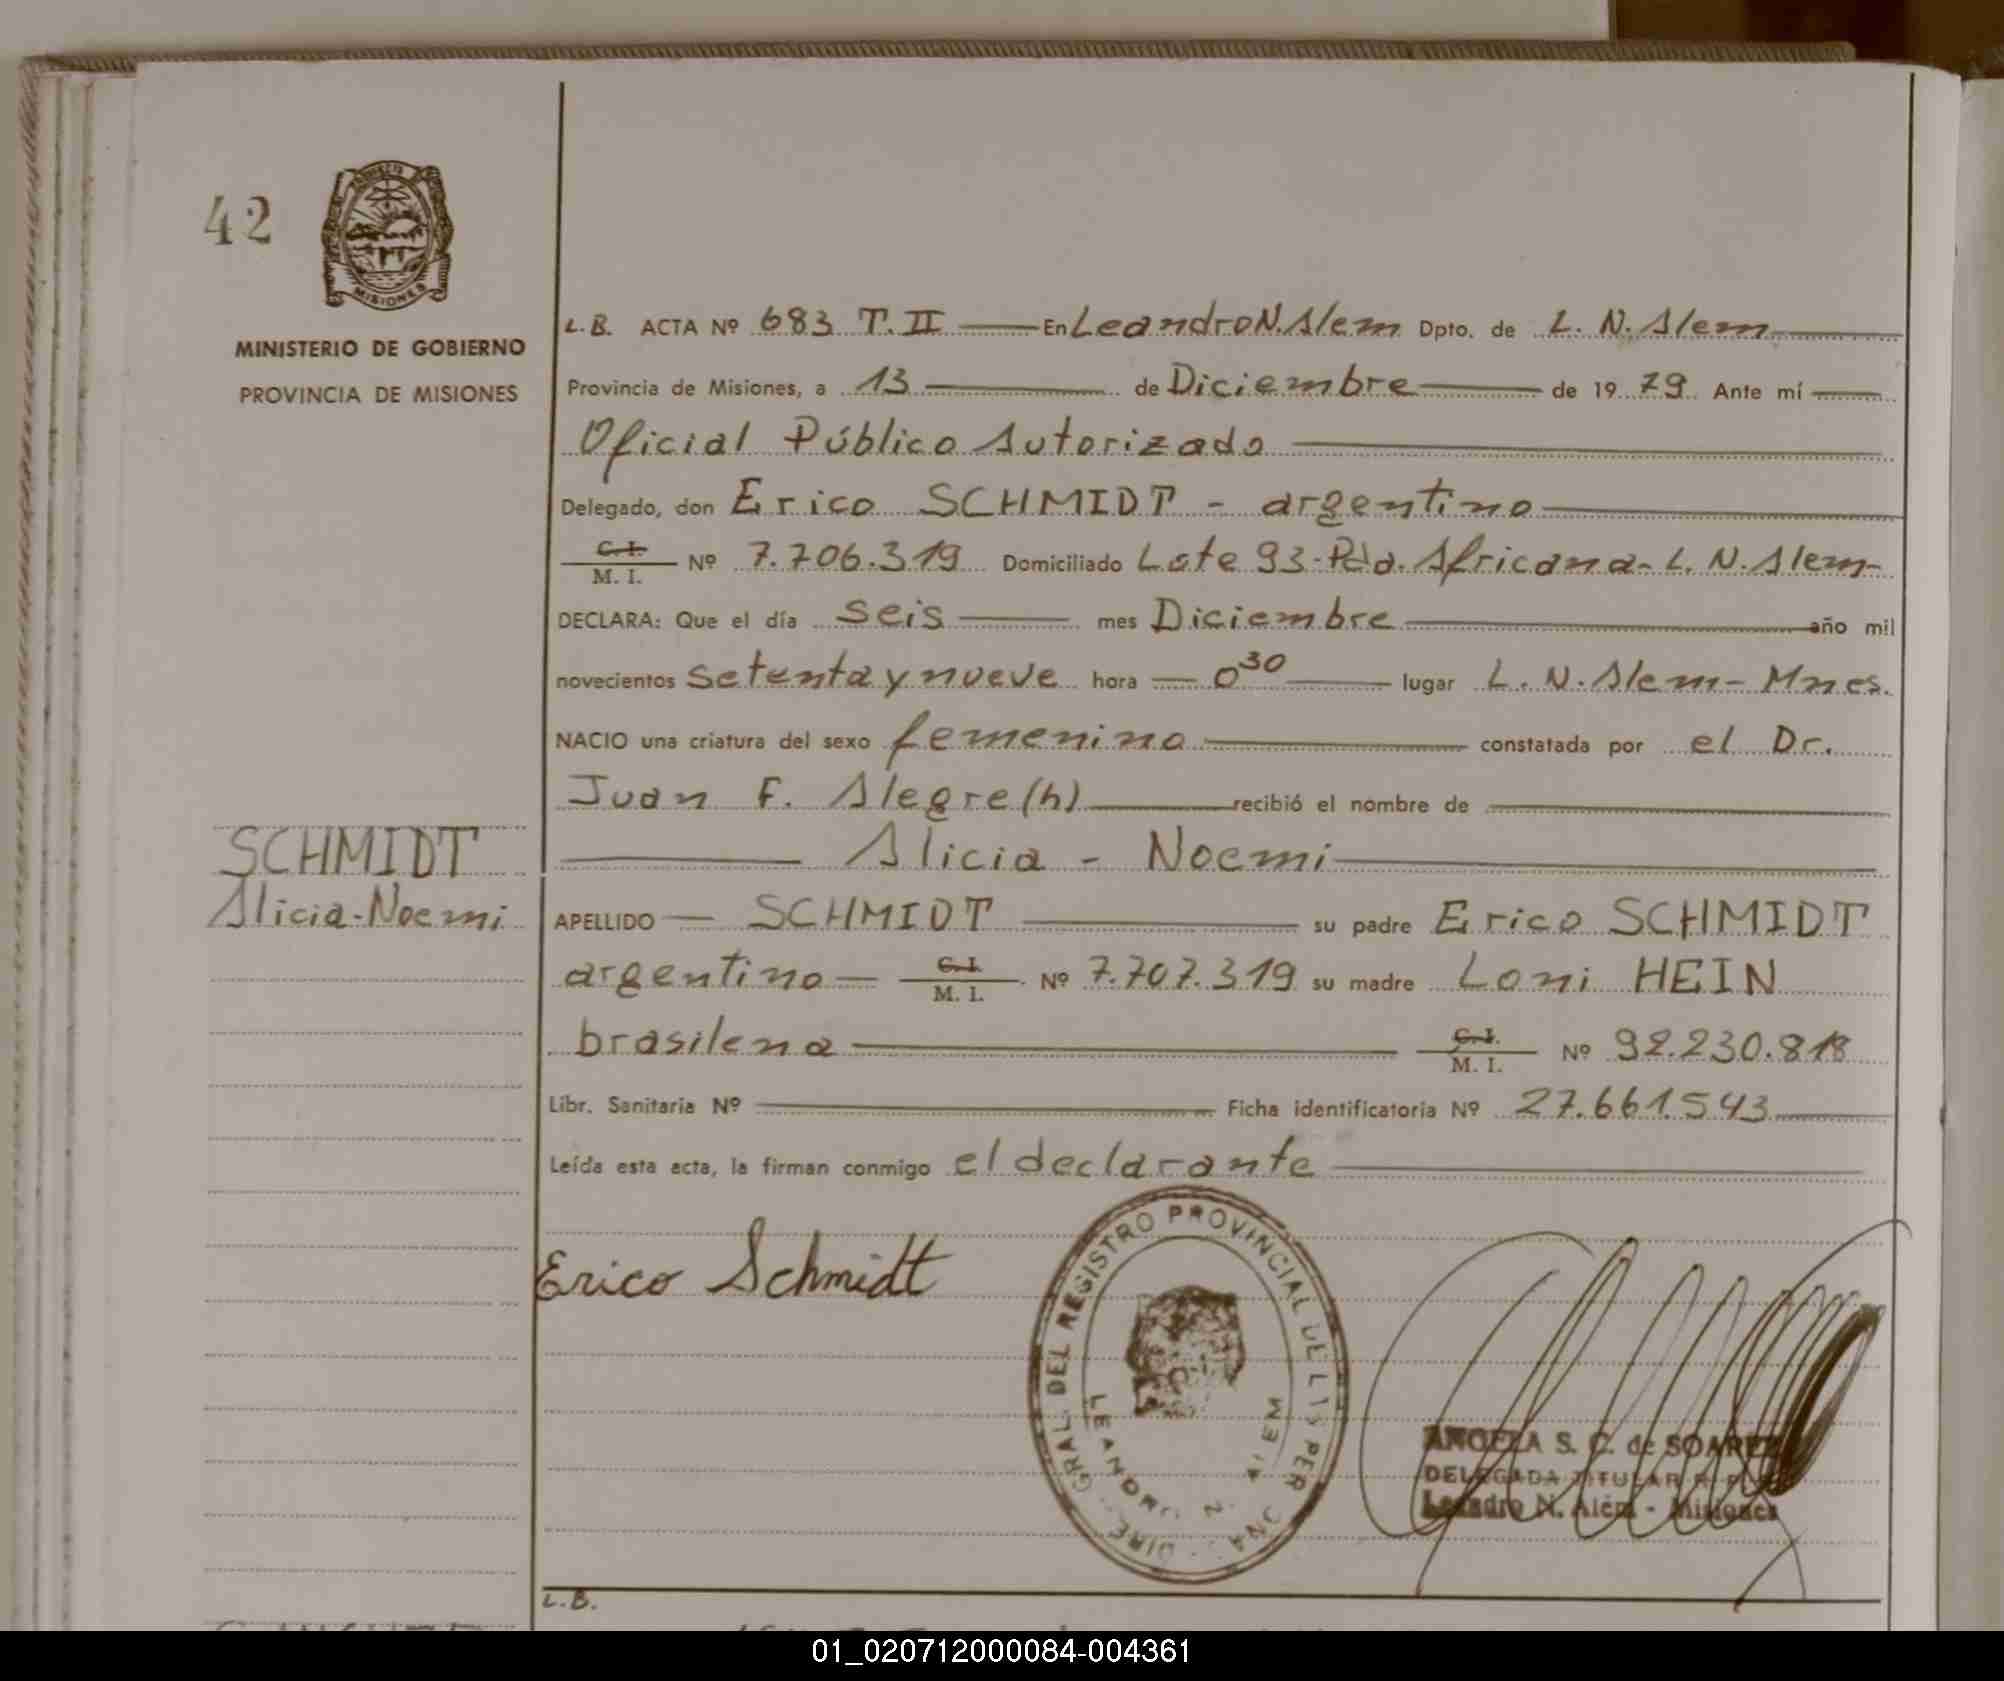 42
MISIONES
MINISTERIO DE GOBIERNO
PROVINCIA DE MISIONES
L.B. ACTA Nº 683 T. II En Leandro N. Alem Dpto. de L. N. Alem
Provincia de Misiones, a 13 de Diciembre de 1979. Ante mí
Oficial Público Autorizado
Delegado, don Erico SCHMIDT - argentino
C.I.
M. I. Nº 7.706.319 Domiciliado Lote 93-Pda. Africana- L. N. Alem-
DECLARA: Que el día seis mes Diciembre año mil
novecientos setenta y nueve hora 0 30 lugar L. N. Alem - Mnes.
NACIO una criatura del sexo femenino constatada por el Dr.
Juan F. Alegre (h) recibió el nombre de
Alicia - Noemi
SCHMIDT
Alicia-Noemi
APELLIDO SCHMIDT su padre Erico SCHMIDT
argentino C.I.
M. I. Nº 7.707.319 su madre Loni HEIN
brasilena C.I.
M. I. Nº 92.230.818
Libr. Sanitaria Nº Ficha identificatoria Nº 27.661.543
Leída esta acta, la firman conmigo el declarante
Erico Schmidt
GRAL. DEL REGISTRO PROVINCIAL DE LAS PER
LEANDRO N. ALEM
ANGELA S. C. de SOAREZ
DELEGADA TITULAR R. P.
Leandro N. Alem - Misiones
L.B.
01_020712000084-004361